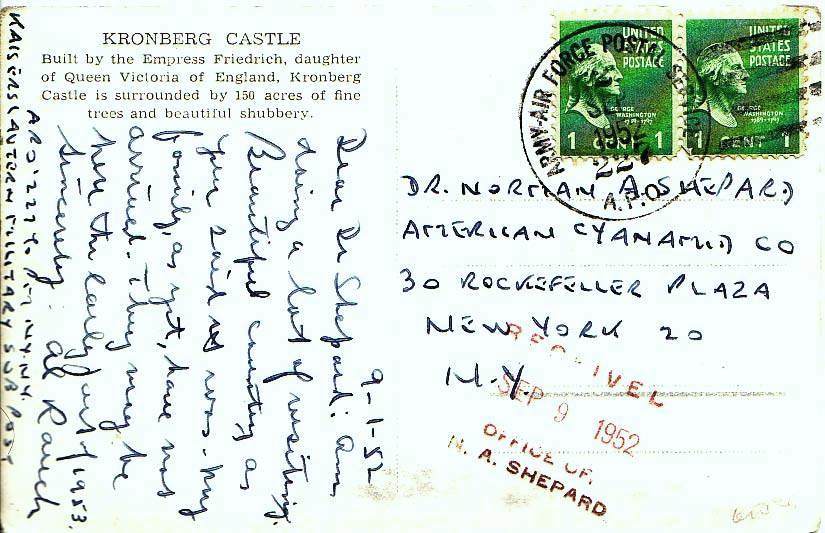 KRONBERG CASTLE
Built by the Empress Friedrich, daughter
of Queen Victoria of England, Kronberg
Castle is surrounded by 150 acres of fine
trees and beautiful shubbery.
9-1-52
Dear Dr Shepard: Am
doing a lot of visiting.
Beautiful country as
you said it was. My
family, as yet, have not
arrived. They may be
here the early part of 1953.
Sincerely, Al Rauch
APO 227 % PM NY. NY.
KAISERSLAUTERN MILITARY SUB POST
UNITED
STATES
POSTAGE
GEORGE
WASHINGTON
1789-1797
1 CENT 1
UNITED
STATES
POSTAGE
GEORGE
WASHINGTON
1789-1797
1 CENT 1
ARMY-AIR FORCE POSTAL SERVICE
1952
227
A.P.O.
DR. NORMAN A. SHEPARD
AMERICAN CYANAMID CO
30 ROCKEFELLER PLAZA
NEW YORK 20
N.Y.
RECEIVED
SEP 9 1952
OFFICE OF
N. A. SHEPARD